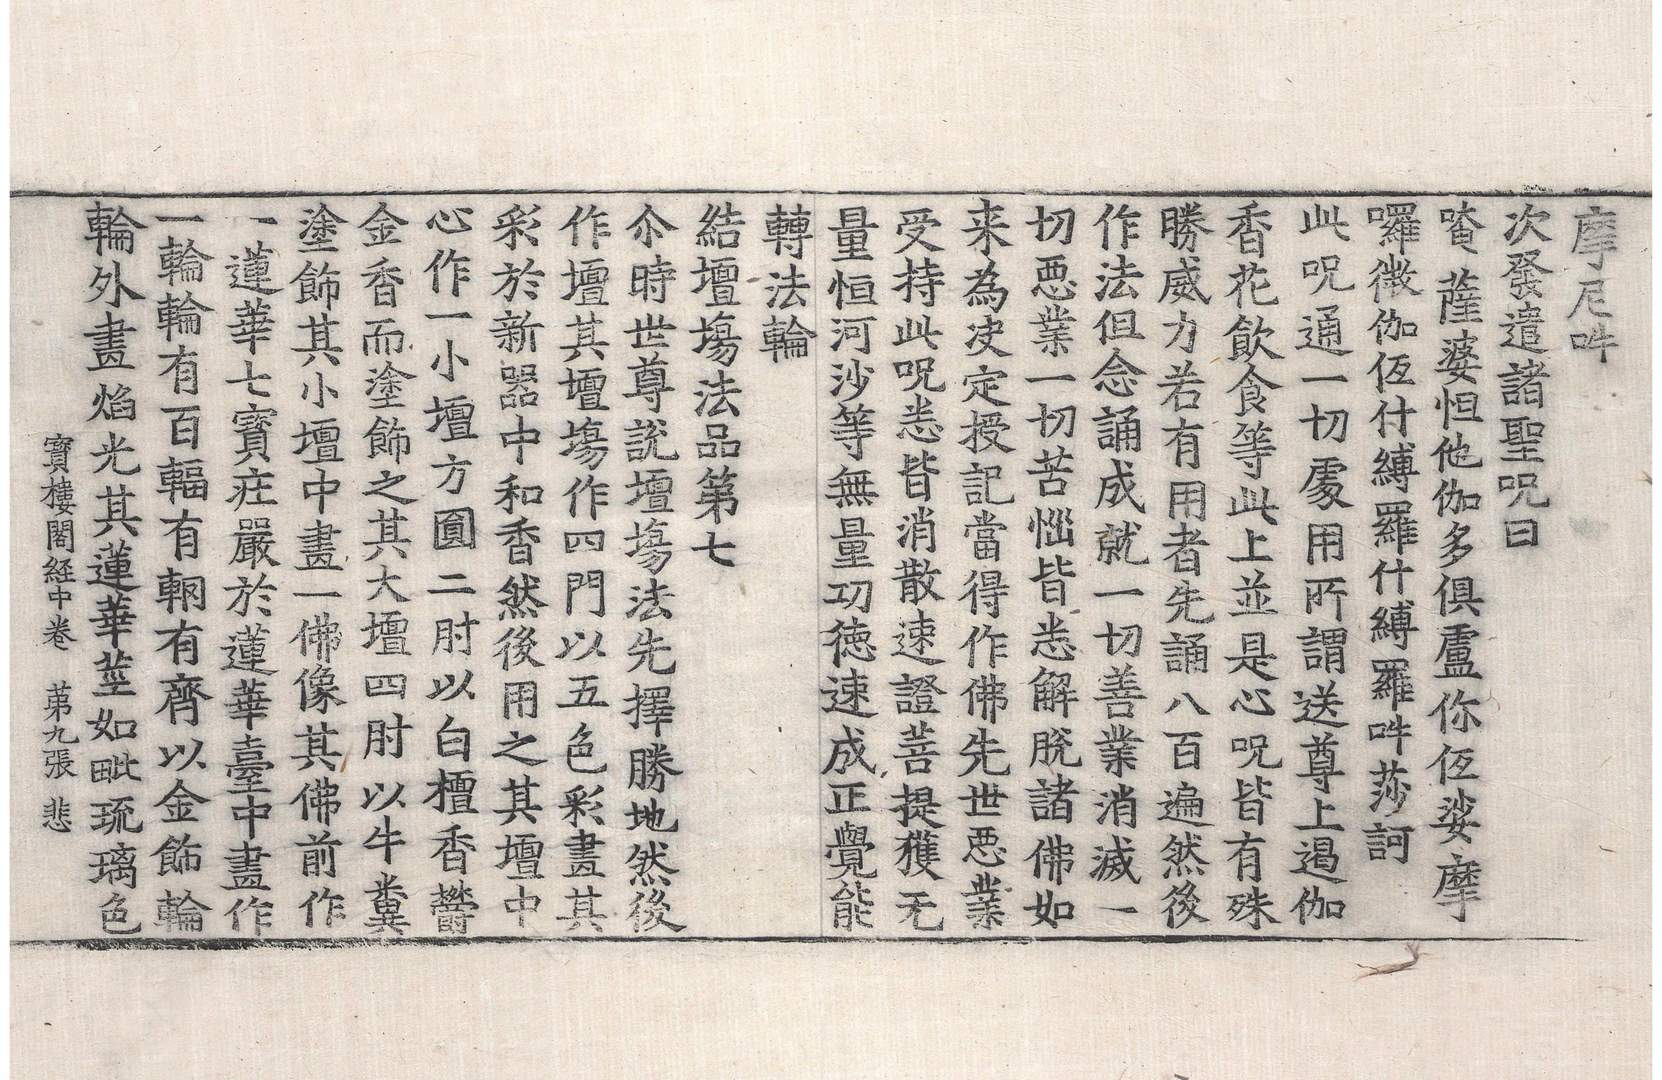 摩尼吽
次發遣諸聖呪曰
唵薩婆怛他伽多俱盧你佤娑摩
囉微伽佤什縛羅什縛羅吽莎訶
此呪通一切處用所謂送尊上遏伽
香花飲食等此上並是心呪皆有殊
勝威力若有用者先誦八百遍然後
作法但念誦成就一切善業消滅一
切惡業一切苦惱皆悉解脫諸佛如
来為決定授記當得作佛先世惡業
受持此呪悉皆消散速證菩提獲无
量恒河沙等無量功徳速成正覺能
轉法輪
結壇塲法品第七
尒時世尊說壇塲法先擇勝地然後
作壇其壇塲作四門以五色彩畫其
彩於新器中和香然後用之其壇中
心作一小壇方圓二肘以白檀香欝
金香而塗飾之其大壇四肘以牛糞
塗飾其小壇中畫一佛像其佛前作
一蓮華七寶莊嚴於蓮華臺中畫作
一輪輪有百輻有輞有齊以金飾輪
輪外畫焰光其蓮華莖如毗琉璃色
寶樓閣経中卷 苐九張 悲